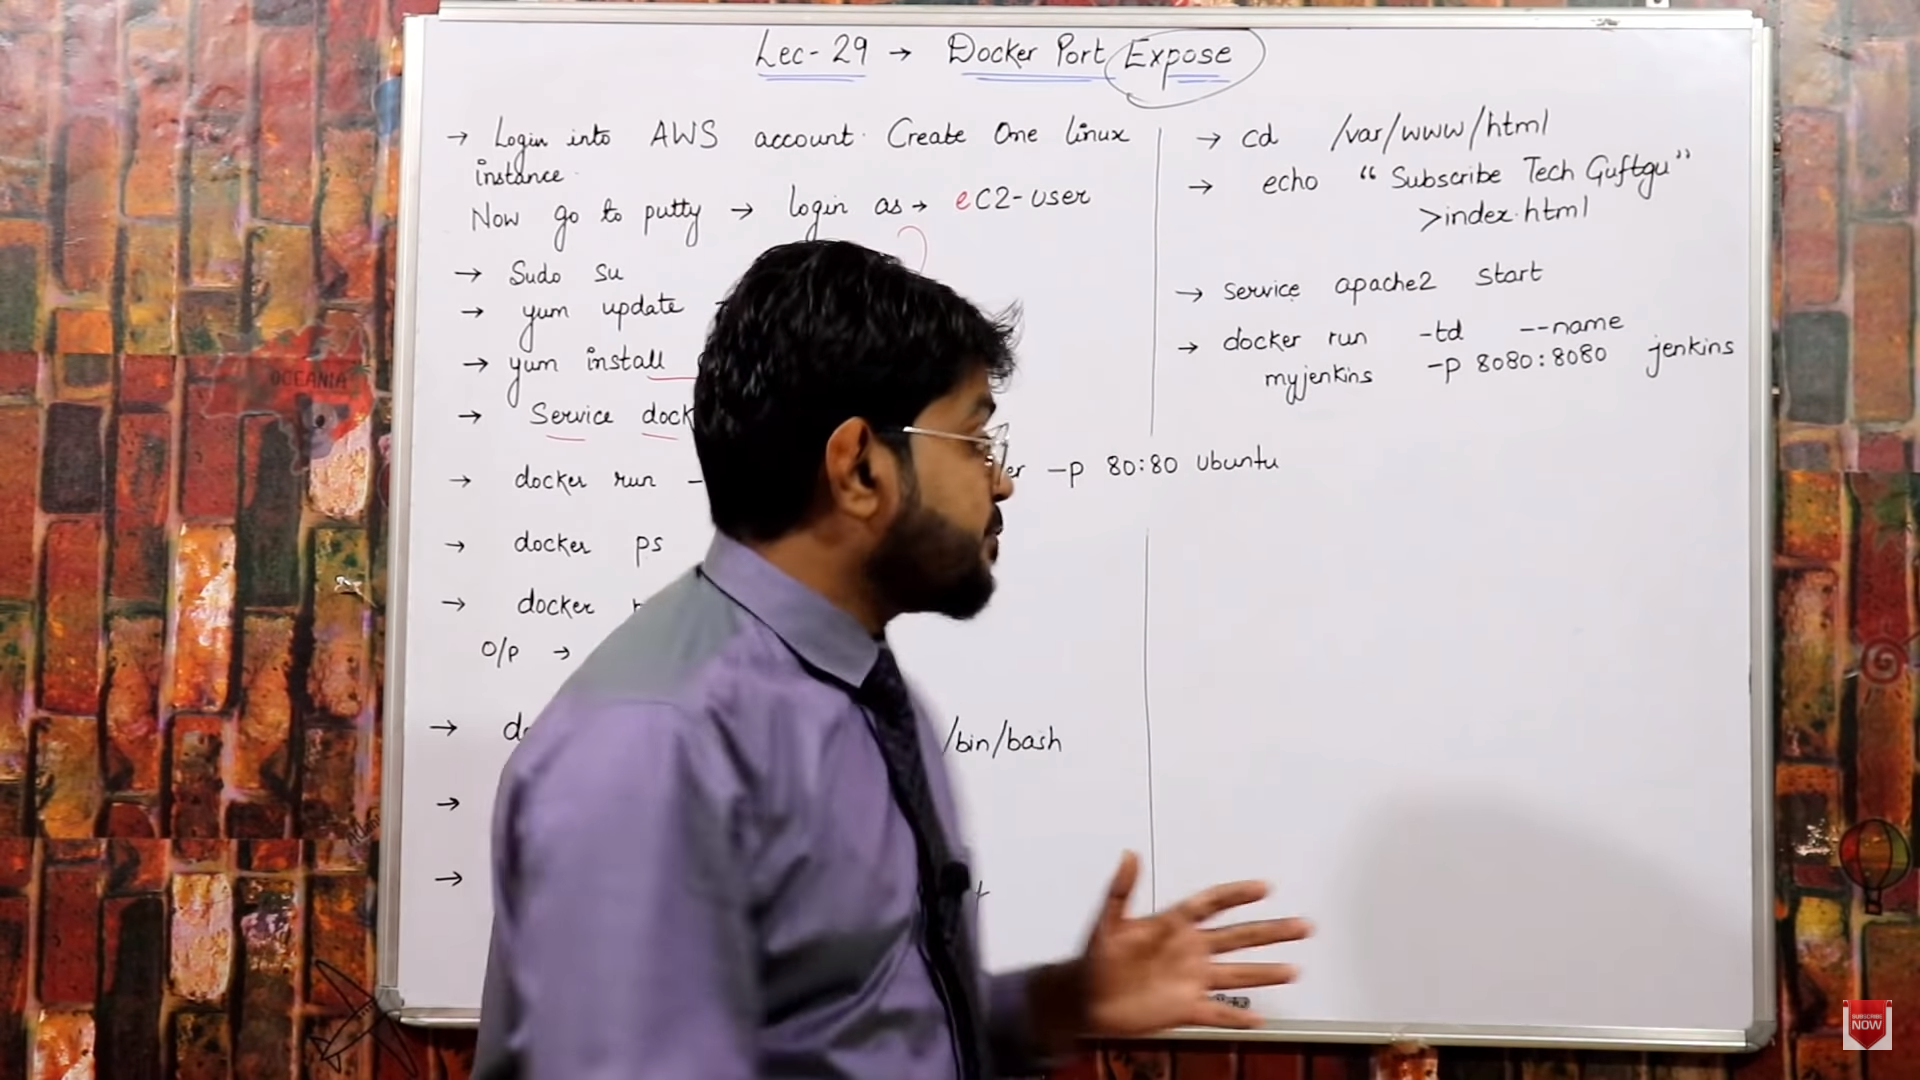 Lec-29 → Docker Port Expose
→ Login into AWS account. Create One linux
instance.
Now go to putty → login as → eC2-user
→ Sudo su
→ yum update
→ yum install
→ Service
→ docker run -
-p 80:80 Ubuntu
→ docker ps
→ docker
O/P →
→
/bin/bash
→
→
→ cd /var/www/html
→ echo “Subscribe Tech Guftgu”
>index.html
→ service apache2 start
→ docker run -td --name
myjenkins -p 8080:8080 jenkins
OCEANIA
SUBSCRIBE
NOW